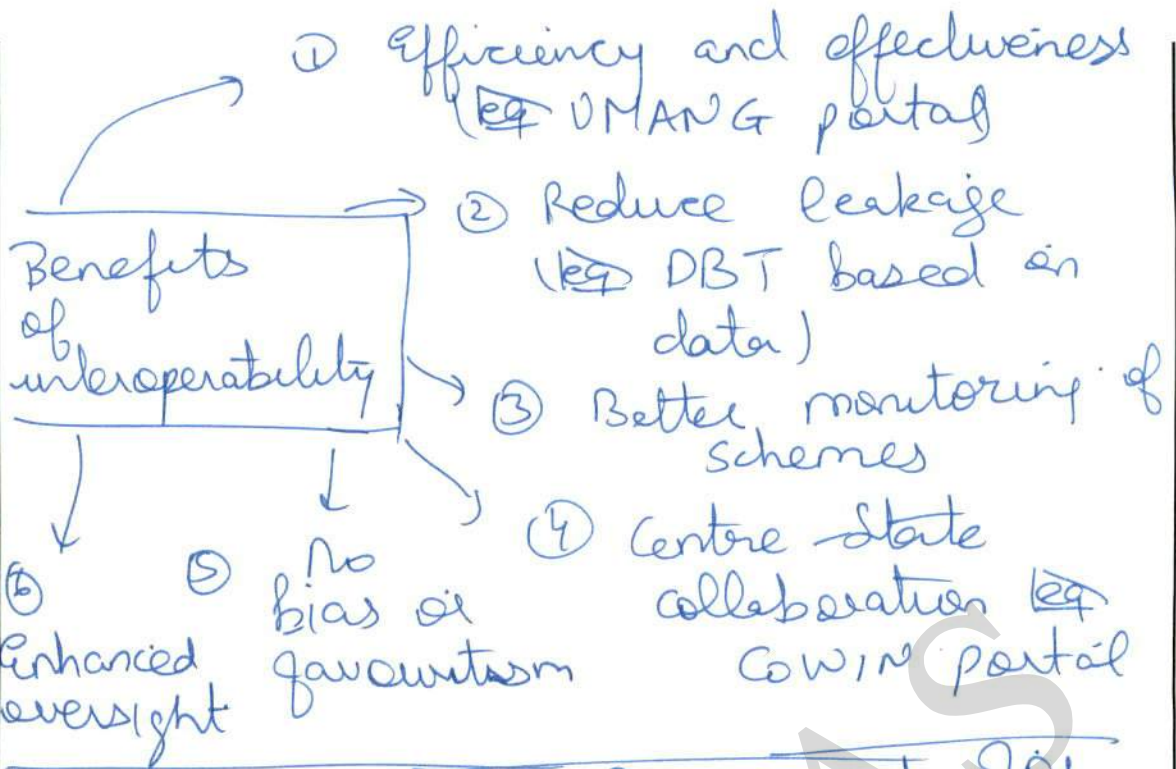 ① Efficiency and effectiveness
(eg UMANG portal
② Reduce leakage
(eg DBT based on
data)
Benefits
of
interoperability
③ Better monitoring of
schemes
④ Centre State
collaboration eg
COWIN portal
⑤ No
bias or
favouritism
⑥
Enhanced
oversight